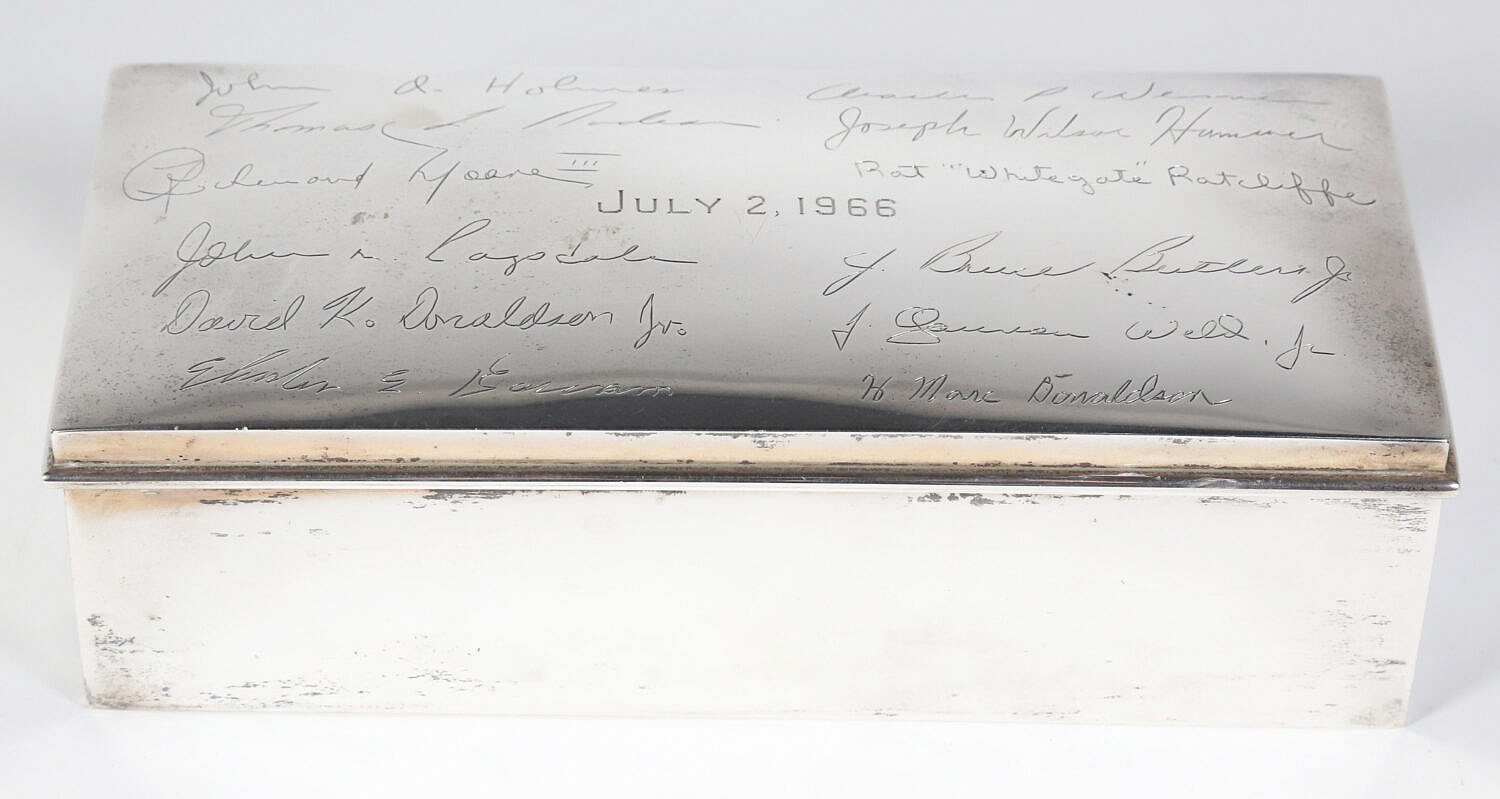 John A. Holmes
Charles P
Thomas L
Joseph Wilson Hummer
Richmond Moore III
Rat "Whitegate" Ratcliffe
JULY 2, 1966
John M. Ragsdale
J. Bruce Butler, Jr.
David K. Donaldson Jr.
J. Weld, Jr
E.
H. Marc Donaldson